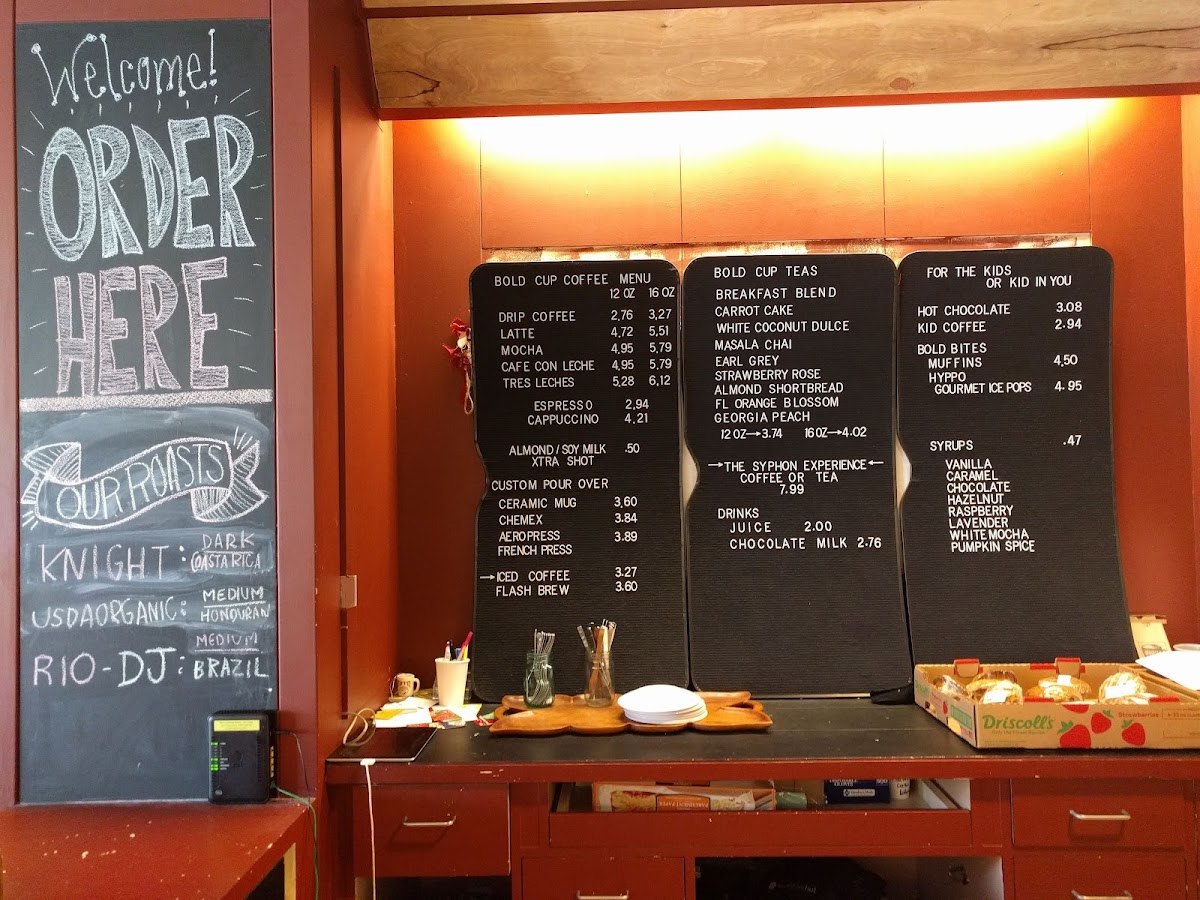 Welcome!
ORDER
HERE
OUR ROASTS
KNIGHT: DARK
COASTA RICA
USDAORGANIC: MEDIUM
HONDURAN
RIO-DJ: MEDIUM
BRAZIL
BOLD CUP COFFEE MENU
12 OZ 16 OZ
DRIP COFFEE 2,76 3,27
LATTE 4.72 5,51
MOCHA 4,95 5,79
CAFE CON LECHE 4,95 5,79
TRES LECHES 5,28 6,12
ESPRESSO 2,94
CAPPUCCINO 4,21
ALMOND/SOY MILK .50
XTRA SHOT
CUSTOM POUR OVER
CERAMIC MUG 3,60
CHEMEX 3.84
AEROPRESS 3.89
FRENCH PRESS
→ICED COFFEE 3.27
FLASH BREW 3.60
BOLD CUP TEAS
BREAKFAST BLEND
CARROT CAKE
WHITE COCONUT DULCE
MASALA CHAI
EARL GREY
STRAWBERRY ROSE
ALMOND SHORTBREAD
FL ORANGE BLOSSOM
GEORGIA PEACH
12 OZ→3.74 16 OZ→4.02
→THE SYPHON EXPERIENCE←
COFFEE OR TEA
7.99
DRINKS
JUICE 2.00
CHOCOLATE MILK 2.76
FOR THE KIDS
OR KID IN YOU
HOT CHOCOLATE 3.08
KID COFFEE 2.94
BOLD BITES
MUFFINS 4,50
HYPPO
GOURMET ICE POPS 4.95
SYRUPS .47
VANILLA
CARAMEL
CHOCOLATE
HAZELNUT
RASPBERRY
LAVENDER
WHITE MOCHA
PUMPKIN SPICE
Driscoll's
Strawberries